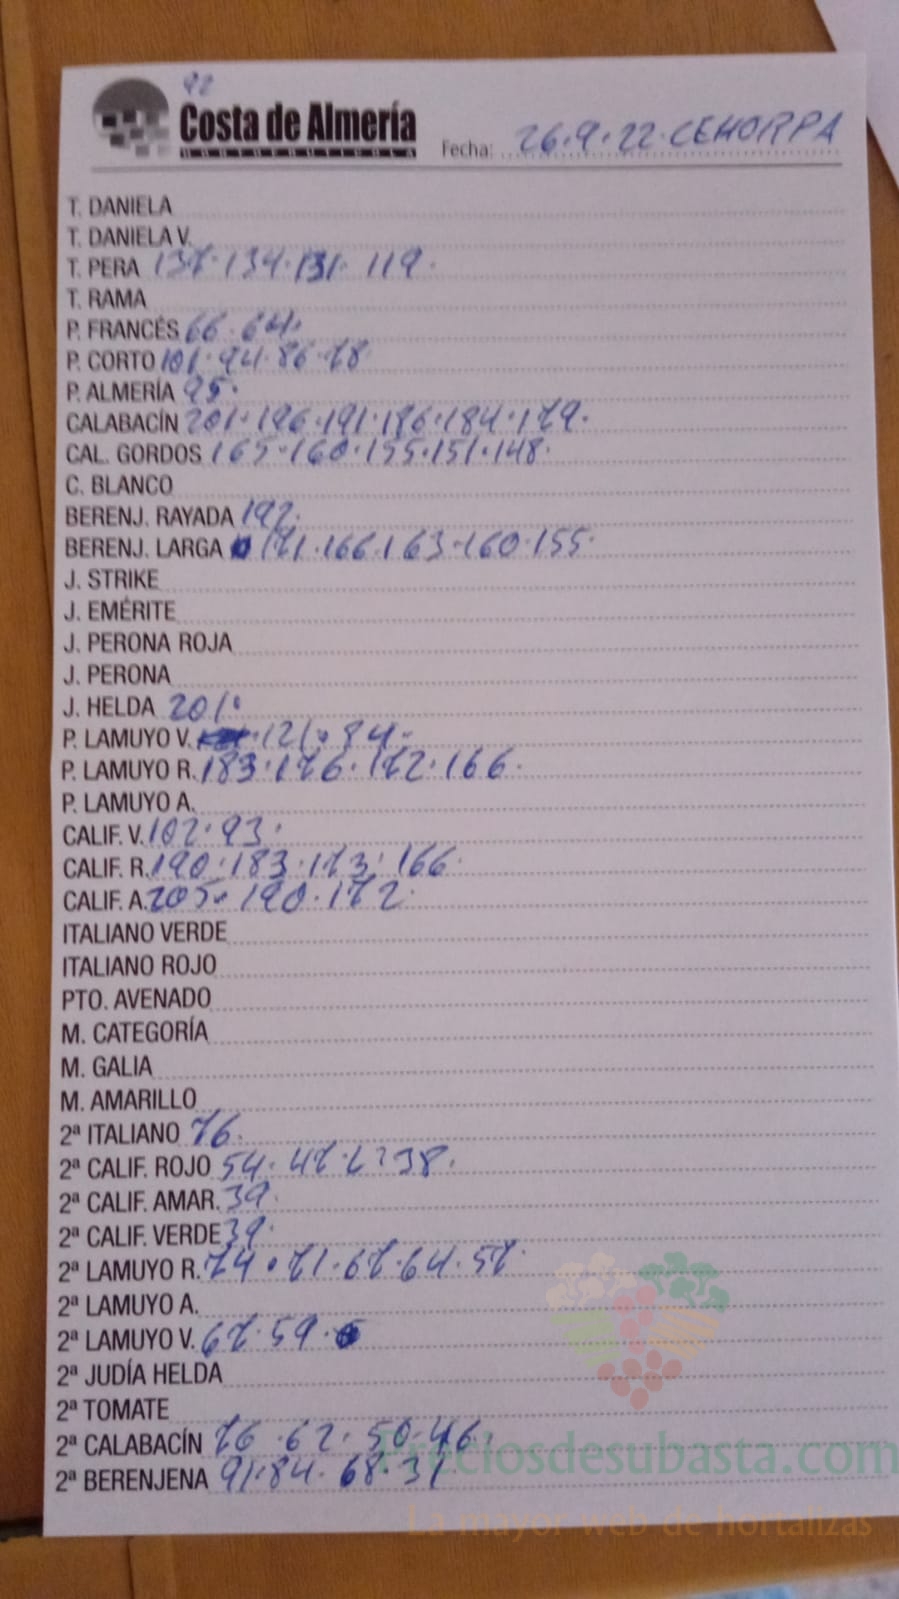 92
Costa de Almería
HORTOFRUTÍCOLA
Fecha: 26.9.22.CEHORPA
T. DANIELA
T. DANIELA V.
T. PERA 137.134.131.119.
T. RAMA
P. FRANCÉS 66.64.
P. CORTO 101.94.86.78
P. ALMERÍA 95.
CALABACÍN 201.196.191.186.184.179.
CAL. GORDOS 165.160.155.151.148.
C. BLANCO
BERENJ. RAYADA 192.
BERENJ. LARGA 171.166.163.160.155.
J. STRIKE
J. EMÉRITE
J. PERONA ROJA
J. PERONA
J. HELDA 201.
P. LAMUYO V. 121.84.
P. LAMUYO R. 183.176.172.166.
P. LAMUYO A.
CALIF. V. 102.93.
CALIF. R. 190.183.173.166.
CALIF. A. 205.190.172.
ITALIANO VERDE
ITALIANO ROJO
PTO. AVENADO
M. CATEGORÍA
M. GALIA
M. AMARILLO
2ª ITALIANO 76.
2ª CALIF. ROJO 54.47. 38.
2ª CALIF. AMAR. 39.
2ª CALIF. VERDE 39.
2ª LAMUYO R. 74.71.67.64.57.
2ª LAMUYO A.
2ª LAMUYO V. 67.59.
2ª JUDÍA HELDA
2ª TOMATE
2ª CALABACÍN 76.62.50.46.
2ª BERENJENA 91.84.68.37.
Preciosdesubasta.com
La mayor web de hortalizas